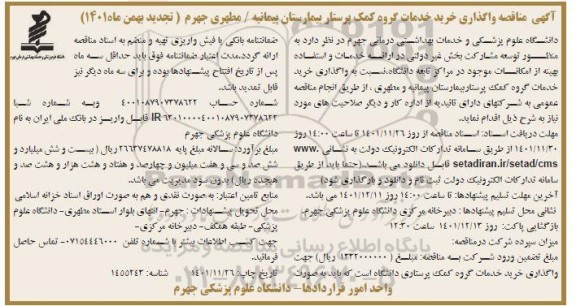 آگهی مناقصه واگذاری خرید خدمات گروه کمک پرستار بیمارستان پیمانیه / مطهری جهرم ( تجدید بهمن ماه۱۴۰۱)
دانشگاه علوم پزشکی و خدمات بهداشتی درمانی جهرم در نظر دارد به
منظور توسعه مشارکت بخش غیر دولتی در ارائه خدمات و استفاده
بهینه از امکانات موجود در مراکز تابعه دانشگاه،نسبت به واگذاری خرید
خدمات گروه کمک پرستاربیمارستان پیمانیه و مطهری ، از طریق انجام مناقصه
عمومی به شرکتهای دارای تائیدیه از اداره کار و دیگر صلاحیت های مورد
نیاز به شرح ذیل اقدام نماید.
مهلت دریافت اسناد: اسناد مناقصه از روز ۱۴۰۱/۱۱/۲۶ تا ساعت ۱۴:۰۰ روز
۱۴۰۱/۱۱/۳۰ از طریق سامانه تدارکات الکترونیک دولت به نشانی .www
setadiran.ir/setad/cms قابل دانلود می باشد.(حتما باید از طریق
سامانه تدارکات الکترونیک دولت ثبت نام و دانلود و بارگذاری شود)
آخرین مهلت تسلیم پیشنهادها: تا ساعت ۱۴:۰۰ روز ۱۴۰۱/۱۲/۱۱ می باشد.
نشانی محل تسلیم پیشنهادها : دبیرخانه مرکزی دانشگاه علوم پزشکی جهرم.
بازگشایی پاکت: روز ۱۴۰۱/۱۲/۱۳ ساعت ۱۲:۳۰
میزان سپرده شرکت درمناقصه:
مبلغ تضمین ورود شرکت به مناقصه: مبلغ ( ۱۳۳۲۰۰۰۰۰۰ ریال) جهت
واگذاری خرید خدمات گروه کمک پرستاری دانشگاه است که باید به صورت
ضمانتنامه بانکی یا فیش واریزی تهیه و منضم به اسناد مناقصه
ارائه گردد.مدت اعتبار ضمانتنامه فوق باید حداقل سه ماه
پس از تاریخ افتتاح پیشنهادها بوده و برای سه ماه دیگر نیز
قابل تمدید باشد.
شماره حساب ۴۰۰۱۰۸۷۹۰۷۳۷۸۶۲۲ وبه شماره شبا
قابل واریز در بانک ملی ایران به نام
دانشگاه علوم پزشکی جهرم
مبلغ برآورد: سالانه مبلغ پایه ۲۶۶۳۷۴۷۸۸۱۸ ریال ( بیست و شش میلیارد و
شش صد و سی و هفت میلیون و چهارصد و هفتاد و هشت هزار و هشت صد و
هیجده ریال) بدون سود مدیریت می باشد.
منابع تامین اعتبار: به صورت نقدی و هم به صورت اوراق اسناد خزانه اسلامی
محل تحویل پیشنهادات : جهرم- انتهای بلوار استاد مطهری- دانشگاه علوم
پزشکی- طبقه همکف- دبیرخانه مرکزی-
جهت کسب اطلاعات بیشتر با شماره تلفن ۰۷۱۵۴۴۴۶۰۰۰ تماس حاصل
فرمائید.
تاریخ چاپ: ۱۴۰۱/۱۱/۲۶ شناسه: ۱۴۵۵۲۴۳
واحد امور قراردادها- دانشگاه علوم پزشکی جهرم